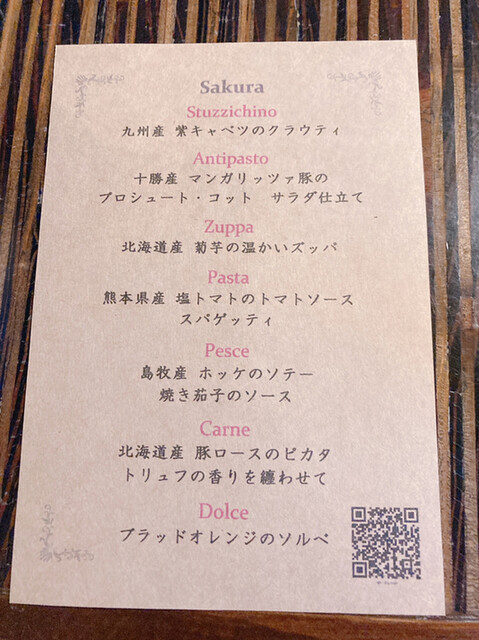 Sakura
Stuzzichino
九州産 紫キャベツのクラウティ
Antipasto
十勝産 マンガリッツァ豚の
プロシュート・コット サラダ仕立て
Zuppa
北海道産 菊芋の温かいズッパ
Pasta
熊本県産 塩トマトのトマトソース
スパゲッティ
Pesce
島牧産 ホッケのソテー
焼き茄子のソース
Carne
北海道産 豚ロースのピカタ
トリュフの香りを纏わせて
Dolce
ブラッドオレンジのソルベ